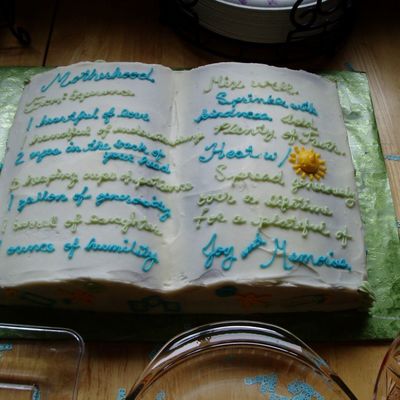 Motherhood
1 heartful of love
1 handful of
2 eyes in the back of
your head
heaping cups of patience
1 gallon of generosity
of laughter
ounces of humility
Mix well,
Sprinkle with
kindness
Plenty of Faith.
Heat w/
Spread generously
over a lifetime
for a plateful of
Joy and Memories.